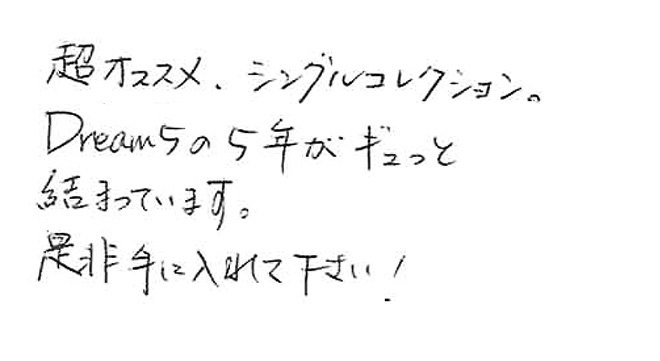 超オススメ、シングルコレクション。
Dream5の5年がギュっと
結まっています。
是非手に入れて下さい!